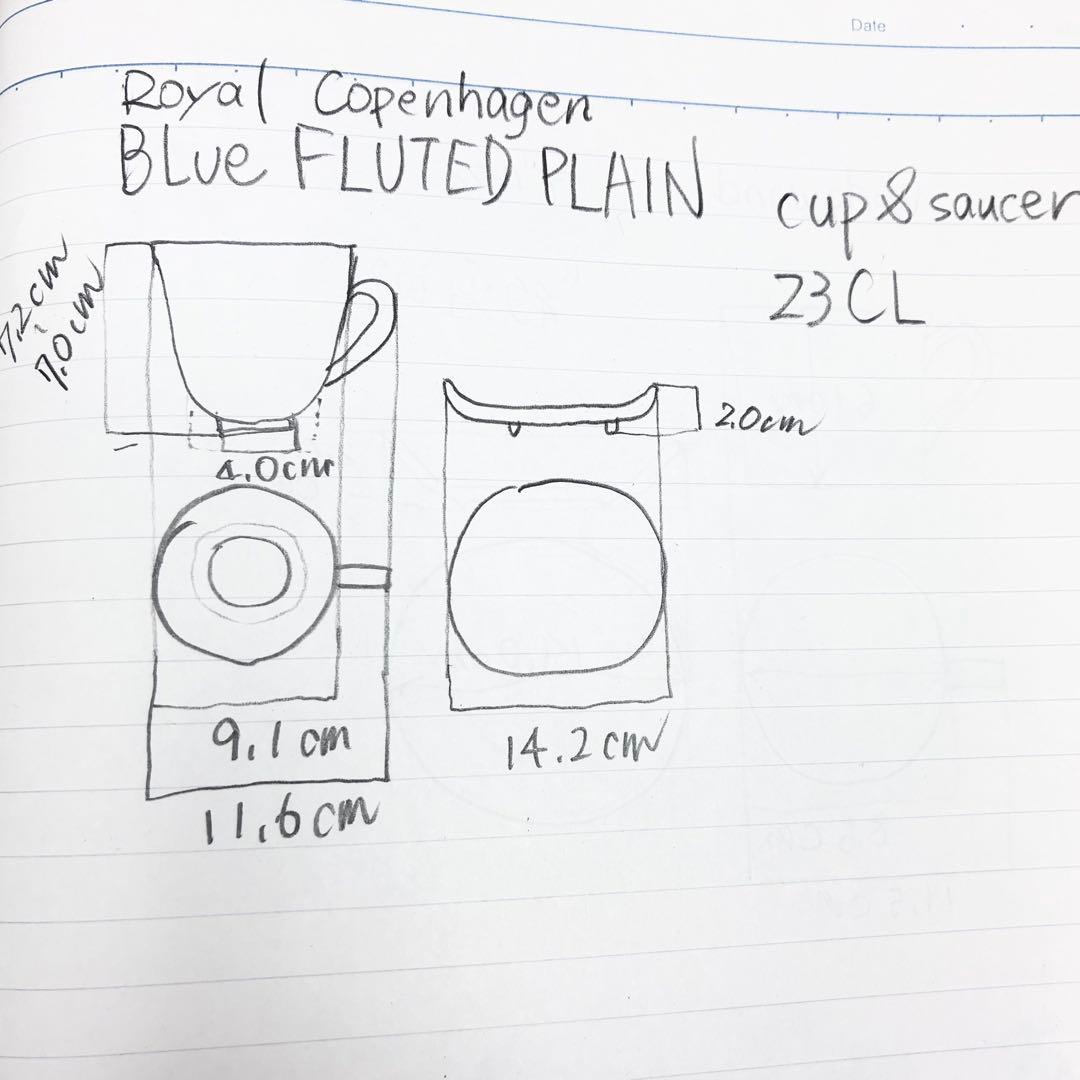 Date
Royal Copenhagen
BLUe FLUTED PLAIN
cup & saucer
23CL
7.2cm
7.0cm
4.0cm
2.0cm
9.1cm
14.2cm
11.6cm